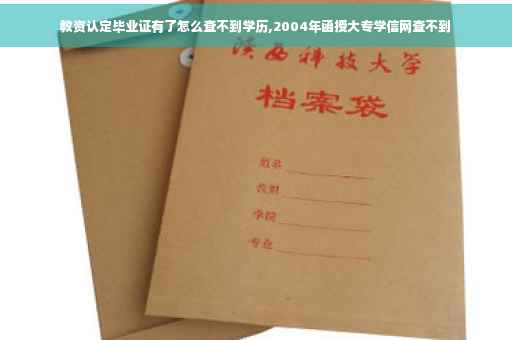 教资认定毕业证有了怎么查不到学历,2004年函授大专学信网查不到
陕西科技大学
档案袋
姓名
学院
专业